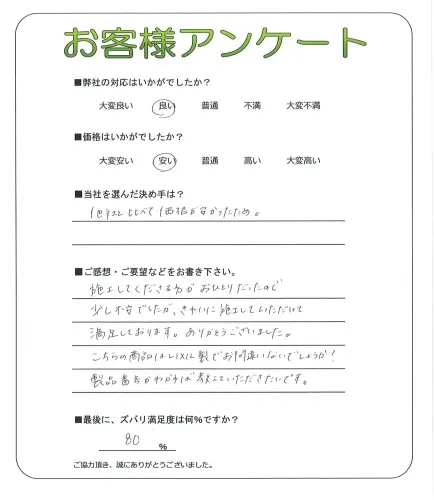 お客様アンケート
■弊社の対応はいかがでしたか？
大変良い 良い 普通 不満 大変不満
■価格はいかがでしたか？
大変安い 安い 普通 高い 大変高い
■当社を選んだ決め手は？
他社と比べて価格が安かったため。
■ご感想・ご要望などをお書き下さい。
施工してくださる方がおひとりだったので
少し不安でしたが、きれいに施工していただけて
満足しております。ありがとうございました。
こちらの商品はLIXIL製でお間違いないでしょうか？
製品番号がわかれば教えていただきたいです。
■最後に、ズバリ満足度は何%ですか？
80 %
ご協力頂き、誠にありがとうございました。